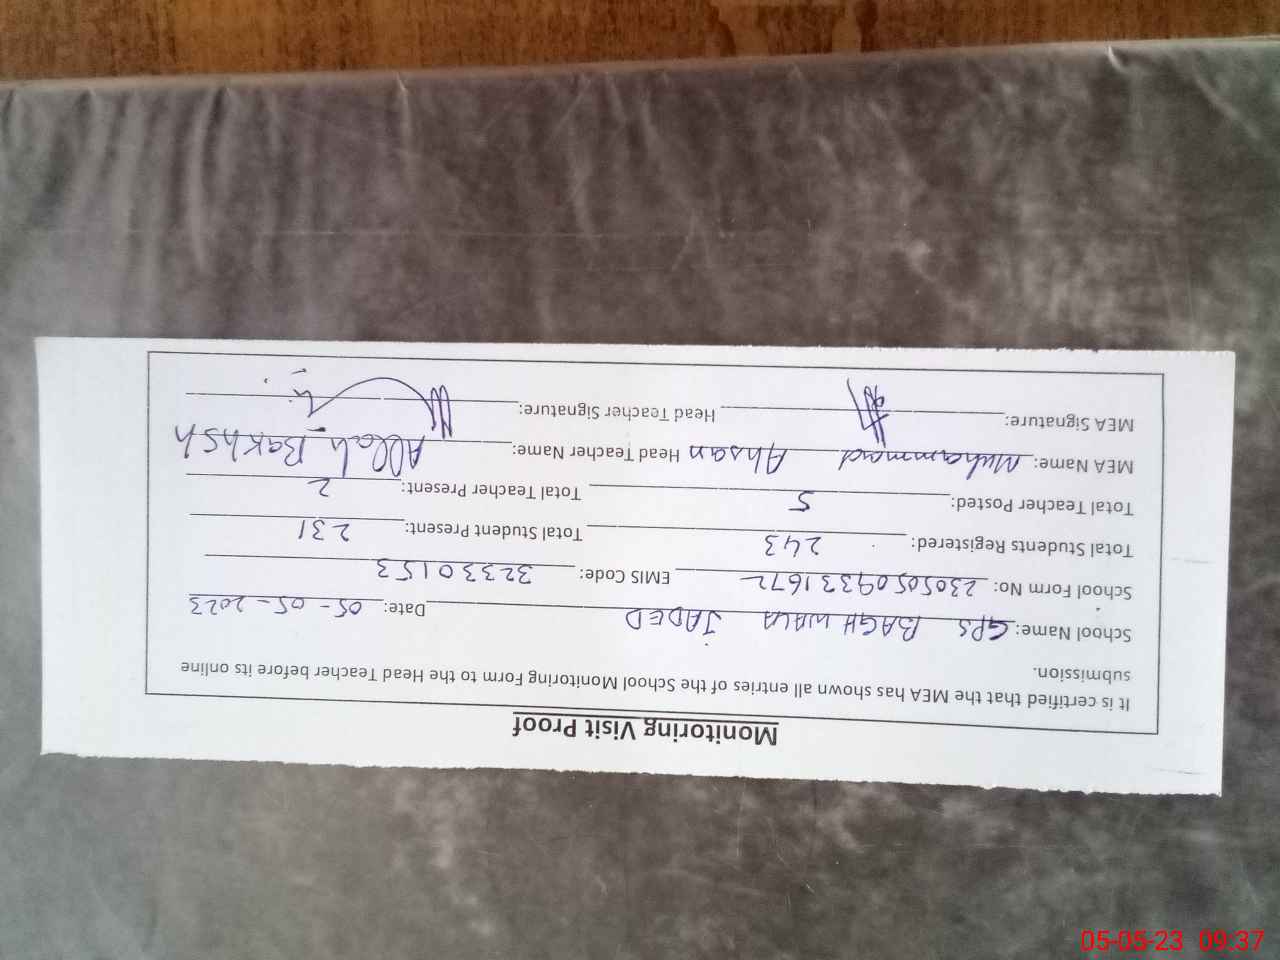 Monitoring Visit Proof
It is certified that the MEA has shown all entries of the School Monitoring Form to the Head Teacher before its online
submission.
School Name: GPS BAGHWALA JADED Date: 05-05-2023
School Form No: 23050509331672 EMIS Code: 32330153
Total Students Registered: 243 Total Student Present: 231
Total Teacher Posted: 5 Total Teacher Present: 2
MEA Name: Muhammad Ahsan Head Teacher Name: Allah Bakhsh
MEA Signature: Head Teacher Signature:
05-05-23 09:37